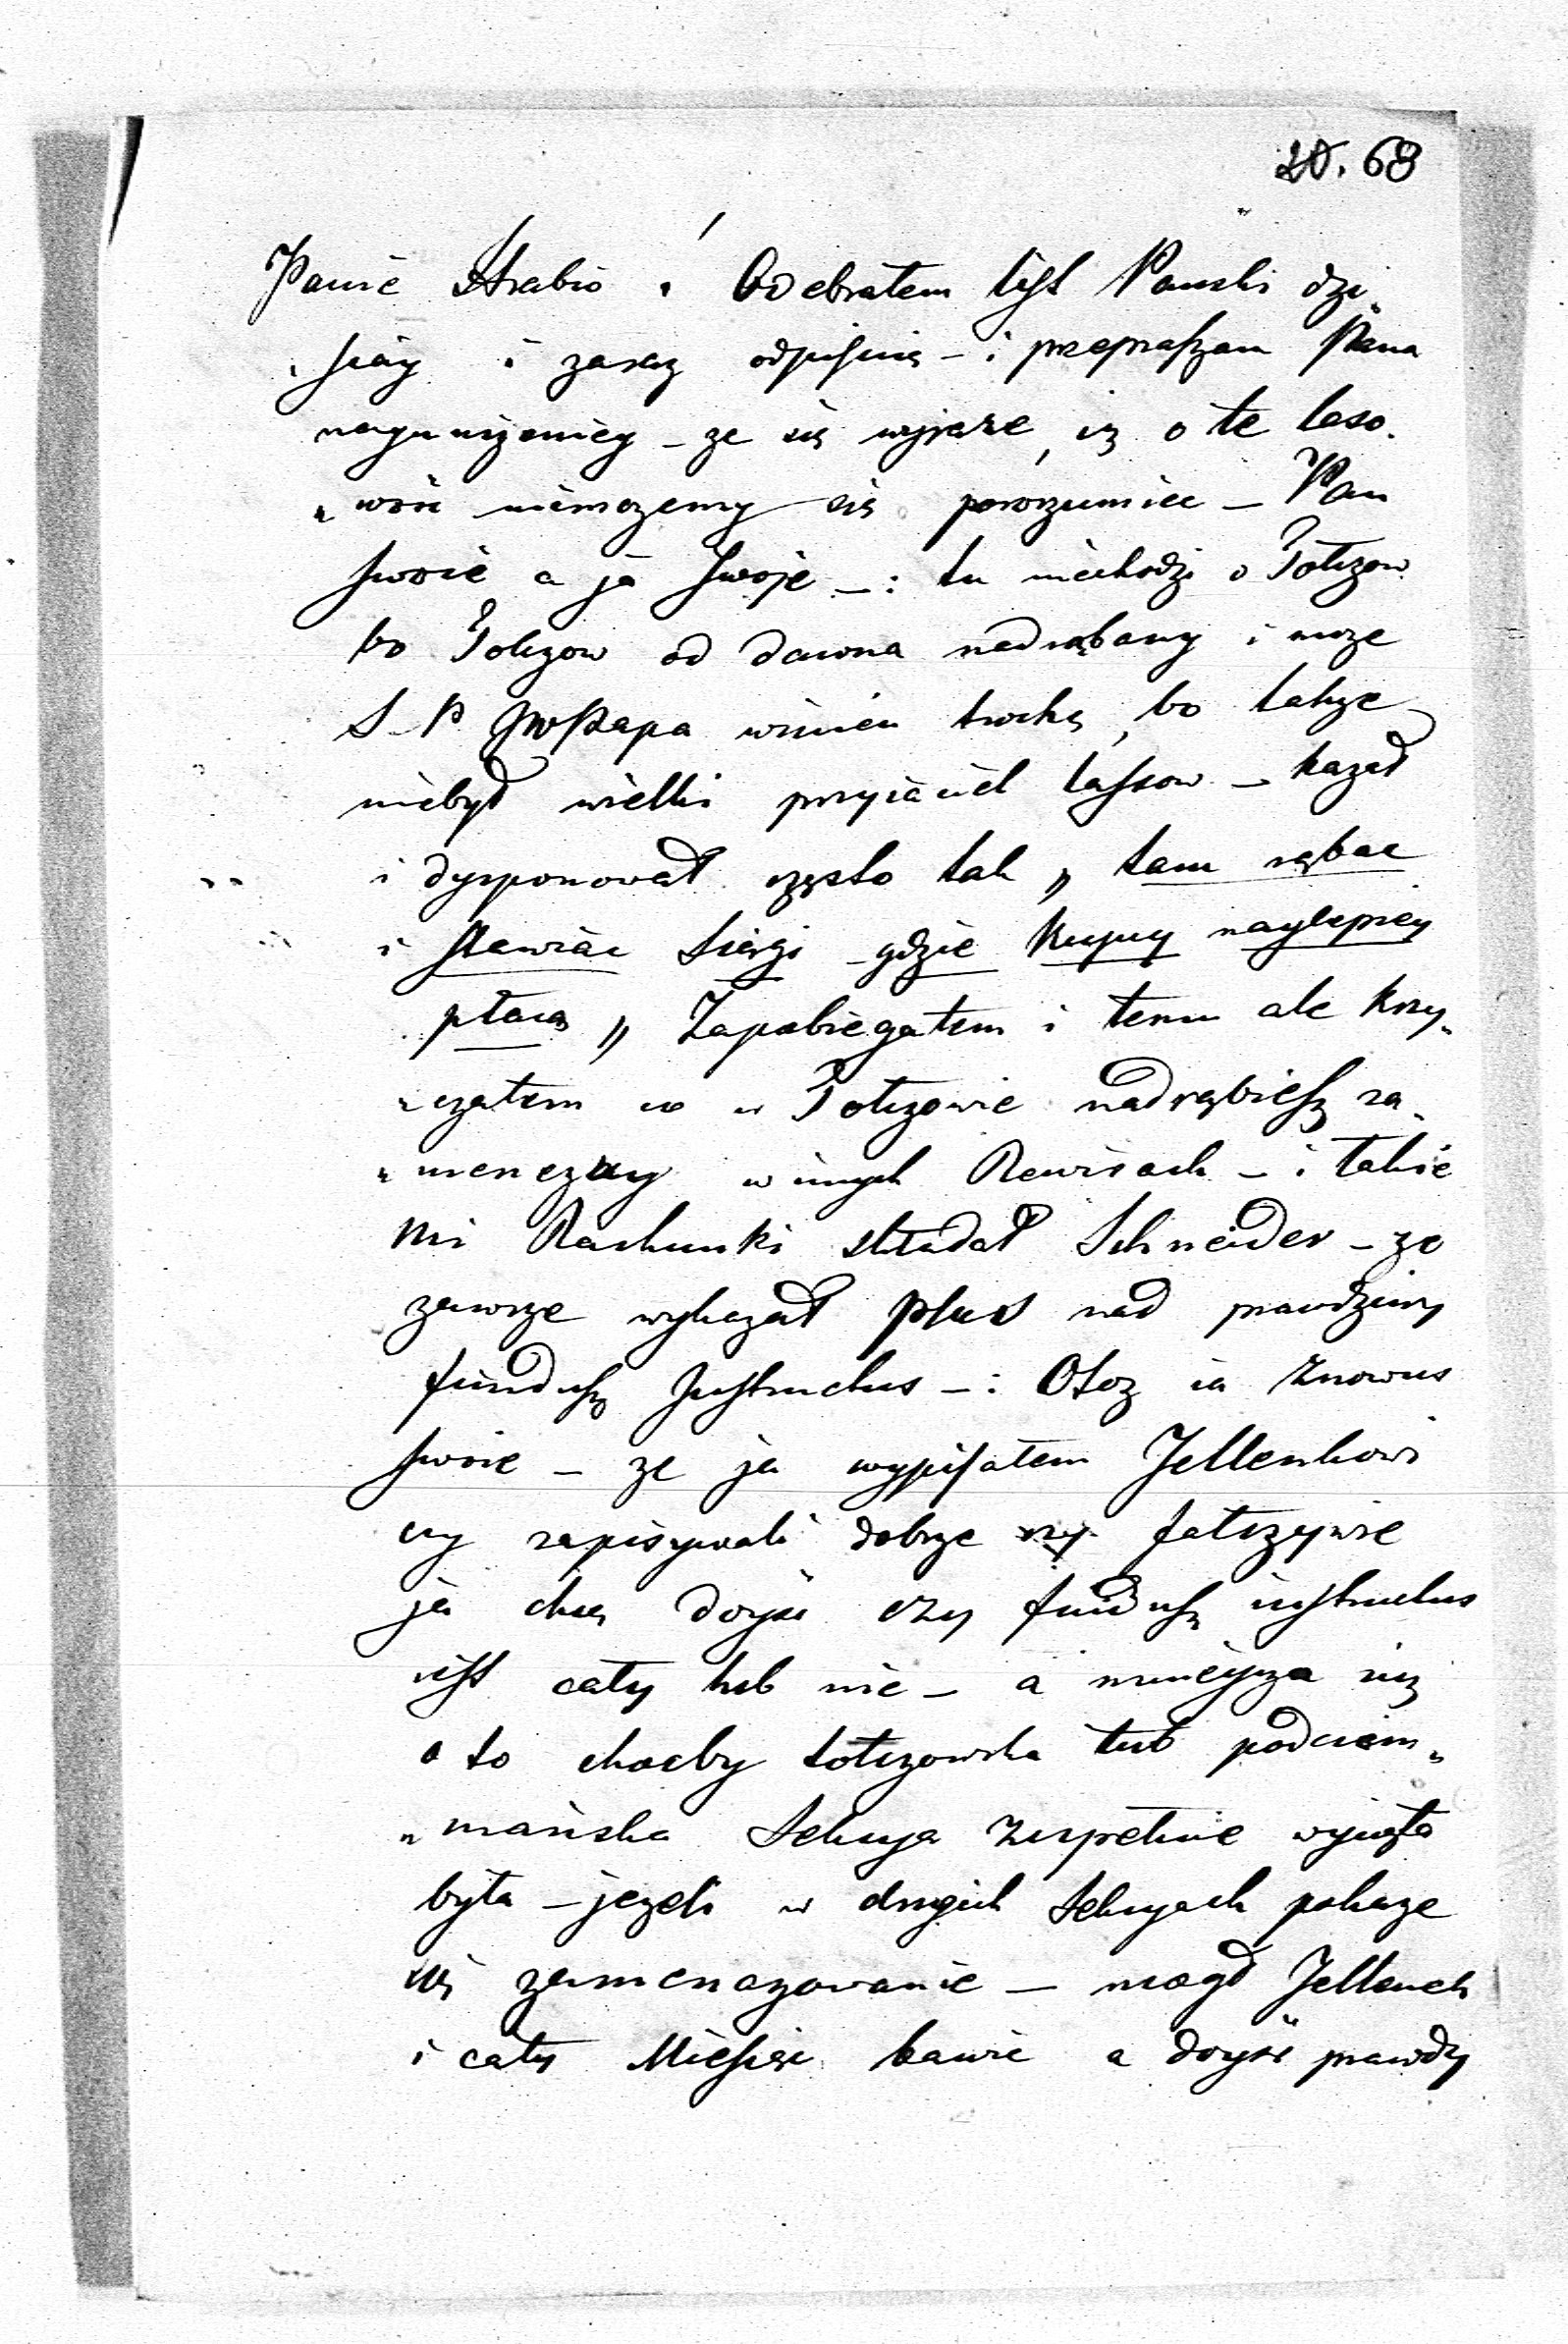 20. 68
Panie Hrabio ! Odebrałem list Pański dzi„
„siay i zaraz odpisuię – i przepraszam Pana
nayuniżeniey – że się wyraże, iż o te laso„
„woie niemożemy się porozumiec – Pan
swoie a ja swoje –: tu niechodzi o Tołszow
bo Tołszow od dawna nadrąbany i może
S P JWPapa winien trochę, bo także
niebył wielki przyiaciel lassow – kazał
i dysponował często tak „ tam rąbac
i stawiac Siągi – gdzie Kupcy naylepiey
płacą „ Zapobiegałem i temu ale krzy„
„czałem co w Tołszowie nadrąbiesz za„
„menczuy w innych Rewirach – i takie
mi Rachunki składał Schneider – że
zawsze wykazał plus nad prawdziwy
fundusz Instructus –: Otoz ia znowus
swoie – że ja wypisałem Jellenkowi
czy zapisywali dobrze czy fałszywie
ja chcę doyść czy fundusz instructus
iest cały lub nie – a mnieysza iuż
o to choćby tołszowska lub podciem„
„mańska Sekcya zupełnie wycięta
była – jezeli w drugich Sekcyach pokaże
się zamenazowanie – mogł Jellenek
i cały Miesiąc bawić a doyść prawdy